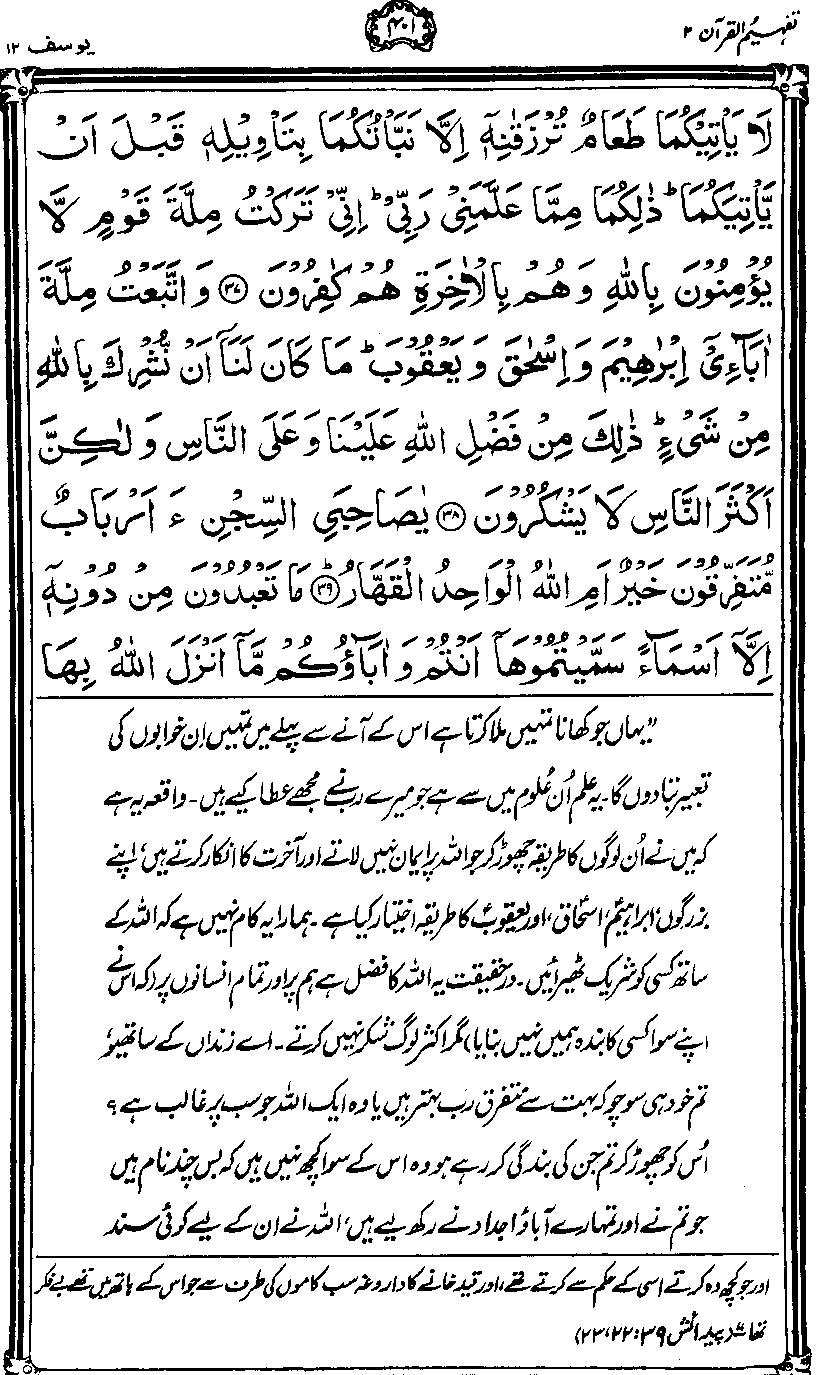 تفہیم القرآن ۲
۴۰۱
یوسف ۱۲
لَا يَأْتِيْكُمَا طَعَامٌ تُرْزَقٰنِهٖٓ اِلَّا نَبَّاْتُكُمَا بِتَاْوِيْلِهٖ قَبْلَ اَنْ
يَّاْتِيَكُمَا ؕ ذٰلِكُمَا مِمَّا عَلَّمَنِیْ رَبِّیْ ؕ اِنِّیْ تَرَكْتُ مِلَّةَ قَوْمٍ لَّا
يُؤْمِنُوْنَ بِاللّٰهِ وَهُمْ بِالْاٰخِرَةِ هُمْ كٰفِرُوْنَ ﴿۳۷﴾ وَ اتَّبَعْتُ مِلَّةَ
اٰبَآءِیْٓ اِبْرٰهِيْمَ وَاِسْحٰقَ وَ يَعْقُوْبَ ؕ مَا كَانَ لَنَآ اَنْ نُّشْرِكَ بِاللّٰهِ
مِنْ شَیْءٍ ؕ ذٰلِكَ مِنْ فَضْلِ اللّٰهِ عَلَيْنَا وَعَلَى النَّاسِ وَ لٰكِنَّ
اَكْثَرَ النَّاسِ لَا يَشْكُرُوْنَ ﴿۳۸﴾ يٰصَاحِبَيِ السِّجْنِ ءَ اَرْبَابٌ
مُّتَفَرِّقُوْنَ خَيْرٌ اَمِ اللّٰهُ الْوَاحِدُ الْقَهَّارُ ﴿۳۹﴾ؕ مَا تَعْبُدُوْنَ مِنْ دُوْنِهٖٓ
اِلَّآ اَسْمَآءً سَمَّيْتُمُوْهَآ اَنْتُمْ وَ اٰبَآؤُكُمْ مَّآ اَنْزَلَ اللّٰهُ بِهَا
”یہاں جو کھانا تمہیں ملا کرتا ہے اس کے آنے سے پہلے میں تمہیں اِن خوابوں کی
تعبیر بتا دوں گا۔ یہ علم اُن عُلوم میں سے ہے جو میرے ربّ نے مجھے عطا کیے ہیں۔ واقعہ یہ ہے
کہ میں نے اُن لوگوں کا طریقہ چھوڑ کر جو اللہ پر ایمان نہیں لاتے اور آخرت کا انکار کرتے ہیں، اپنے
بزرگوں، ابراہیمؑ، اسحاقؑ اور یعقوبؑ کا طریقہ اختیار کیا ہے۔ ہمارا یہ کام نہیں ہے کہ اللہ کے
ساتھ کسی کو شریک ٹھیرائیں۔ درحقیقت یہ اللہ کا فضل ہے ہم پر اور تمام انسانوں پر (کہ اس نے
اپنے سوا کسی کا بندہ ہمیں نہیں بنایا) مگر اکثر لوگ شکر نہیں کرتے۔ اے زنداں کے ساتھیو،
تم خود ہی سوچو کہ بہت سے متفرق رب بہتر ہیں یا وہ ایک اللہ جو سب پر غالب ہے؟
اُس کو چھوڑ کر تم جن کی بندگی کر رہے ہو وہ اس کے سوا کچھ نہیں ہیں کہ بس چند نام ہیں
جو تم نے اور تمہارے آباؤ اجداد نے رکھ لیے ہیں، اللہ نے ان کے لیے کوئی سند
اور جو کچھ وہ کرتے اسی کے حکم سے کرتے تھے، اور قید خانے کا داروغہ سب کاموں کی طرف سے جو اس کے ہاتھ میں تھے بے فکر
تھا“ (پیدائش ۳۹: ۲۲، ۲۳)